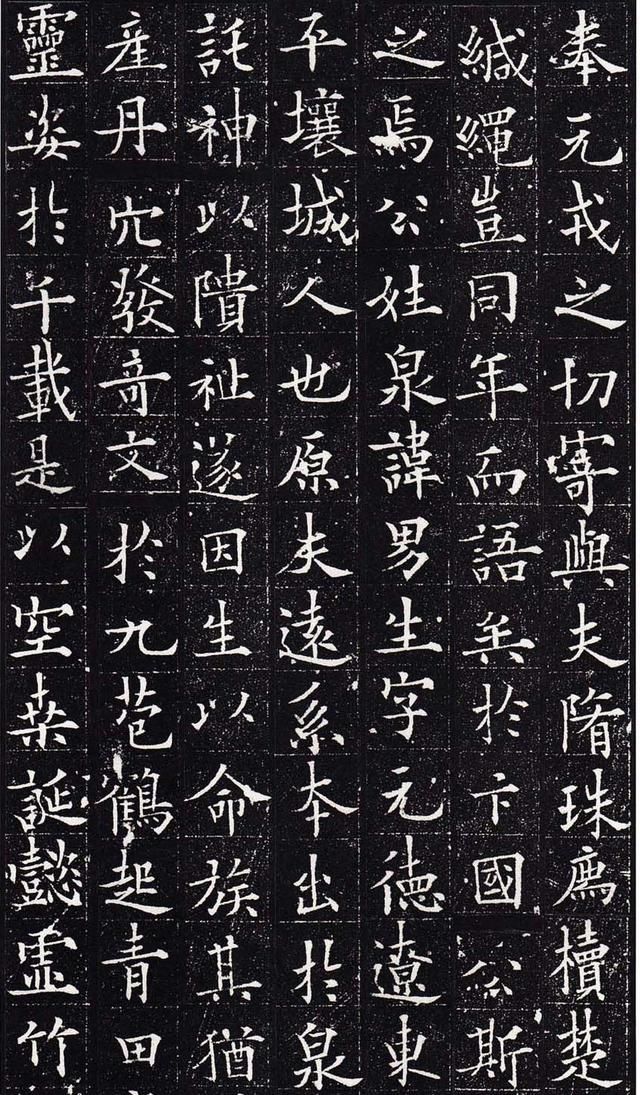 奉元戎之切寄與夫隋珠廌櫝楚
緘繩豈同年而語矣於卞國公斯
之焉公姓泉諱男生字元德遼東
平壤城人也原夫遠系本出於泉
託神以隤祉遂因生以命族其猶
産丹穴發奇文於九苞鶴起青田
靈姿於千載是以空桑誕懿虛竹